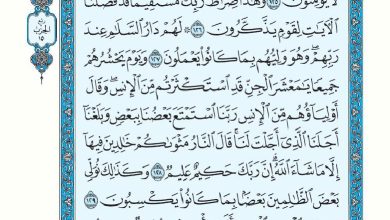 لَا يُؤْمِنُونَ ١٢٥ وَهَٰذَا صِرَاطُ رَبِّكَ مُسْتَقِيمًا قَدْ فَصَّلْنَا
الْآيَاتِ لِقَوْمٍ يَذَّكَّرُونَ ١٢٦ لَهُمْ دَارُ السَّلَامِ عِندَ
رَبِّهِمْ وَهُوَ وَلِيُّهُم بِمَا كَانُوا يَعْمَلُونَ ١٢٧ وَيَوْمَ يَحْشُرُهُمْ
جَمِيعًا يَا مَعْشَرَ الْجِنِّ قَدِ اسْتَكْثَرْتُم مِّنَ الْإِنسِ وَقَالَ
أَوْلِيَاؤُهُم مِّنَ الْإِنسِ رَبَّنَا اسْتَمْتَعَ بَعْضُنَا بِبَعْضٍ وَبَلَغْنَا
أَجَلَنَا الَّذِي أَجَّلْتَ لَنَا قَالَ النَّارُ مَثْوَاكُمْ خَالِدِينَ فِيهَا
إِلَّا مَا شَاءَ اللَّهُ إِنَّ رَبَّكَ حَكِيمٌ عَلِيمٌ ١٢٨ وَكَذَٰلِكَ نُوَلِّي
بَعْضَ الظَّالِمِينَ بَعْضًا بِمَا كَانُوا يَكْسِبُونَ ١٢٩
الحزب
١٥